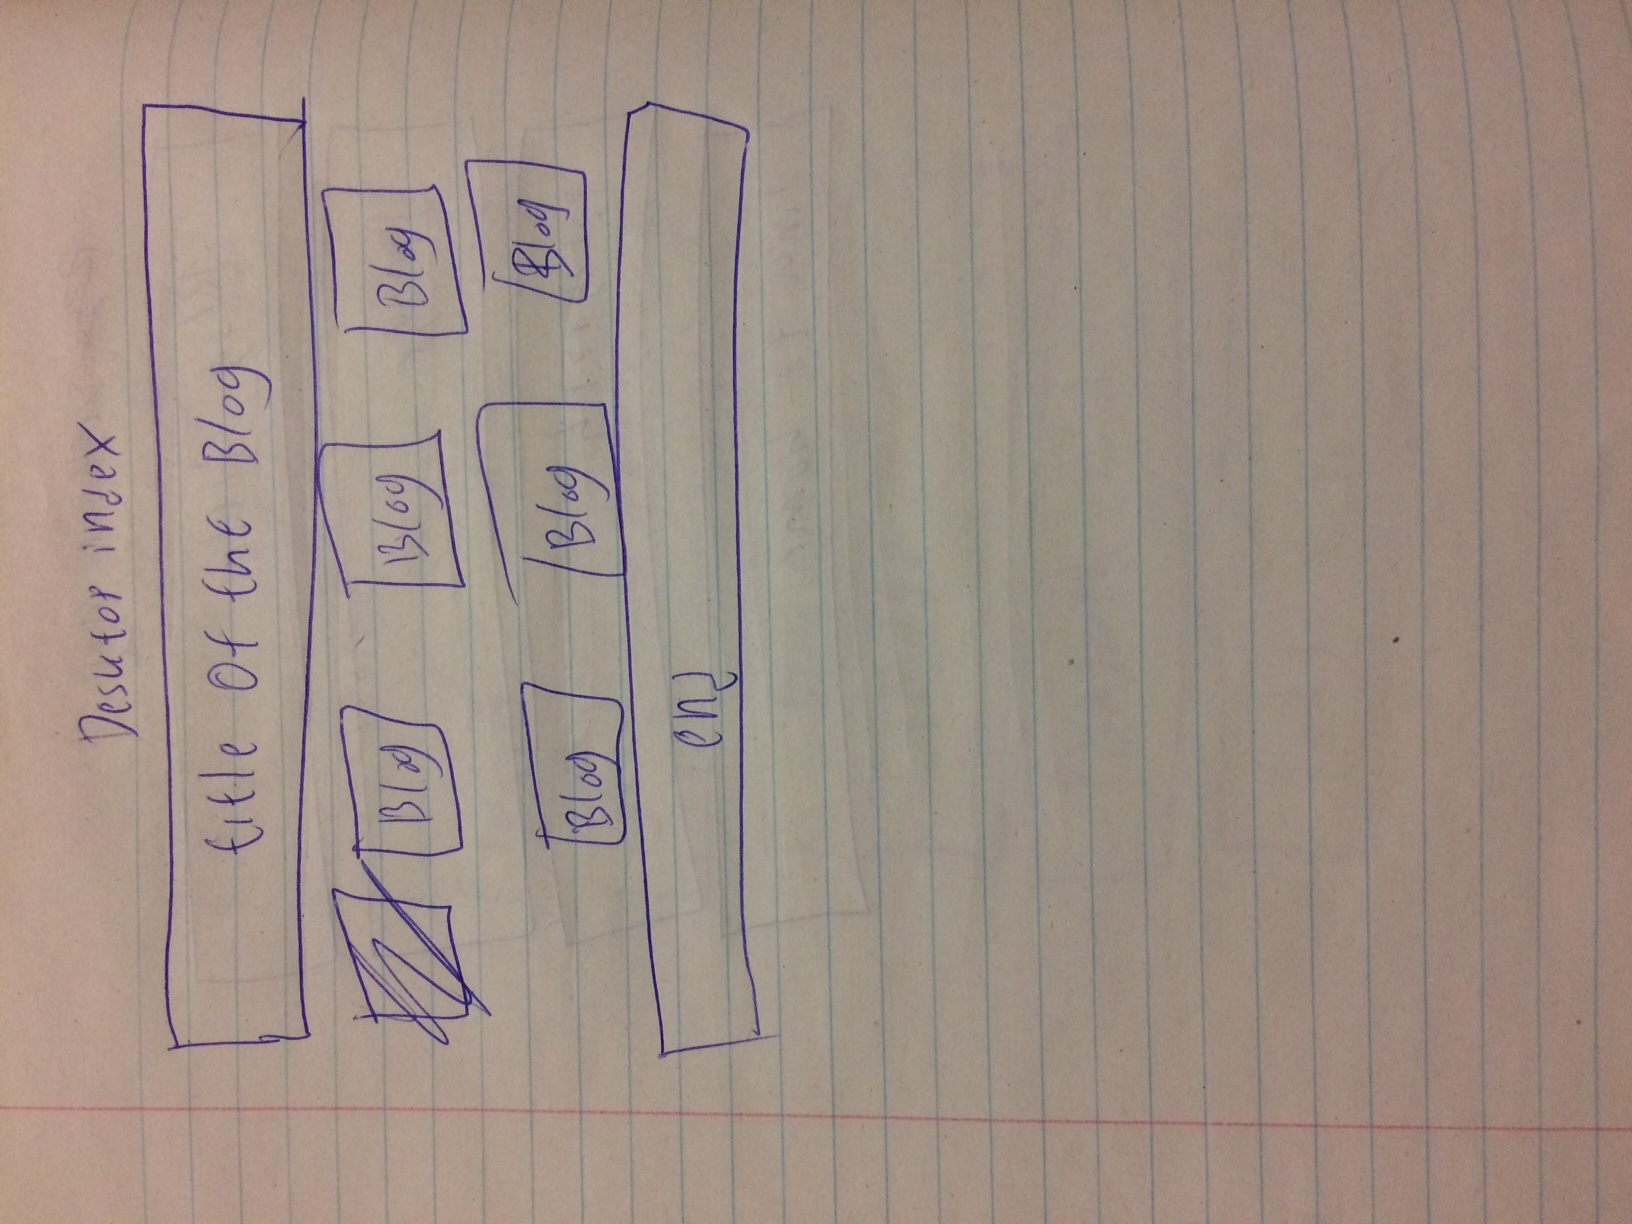 Desktop index
title Of the Blog
Blog Blog Blog
Blog Blog Blog
end